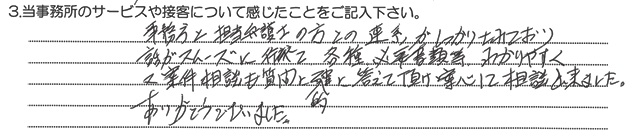 3.当事務所のサービスや接客について感じたことをご記入下さい。
事務方と担当弁護士の方との連系がしっかりされており
話がスムーズに 各種、必要書類等わかりやすく
又事件相談も質問と確と答えて頂け安心して相談出来ました。
的
ありがとうございました。